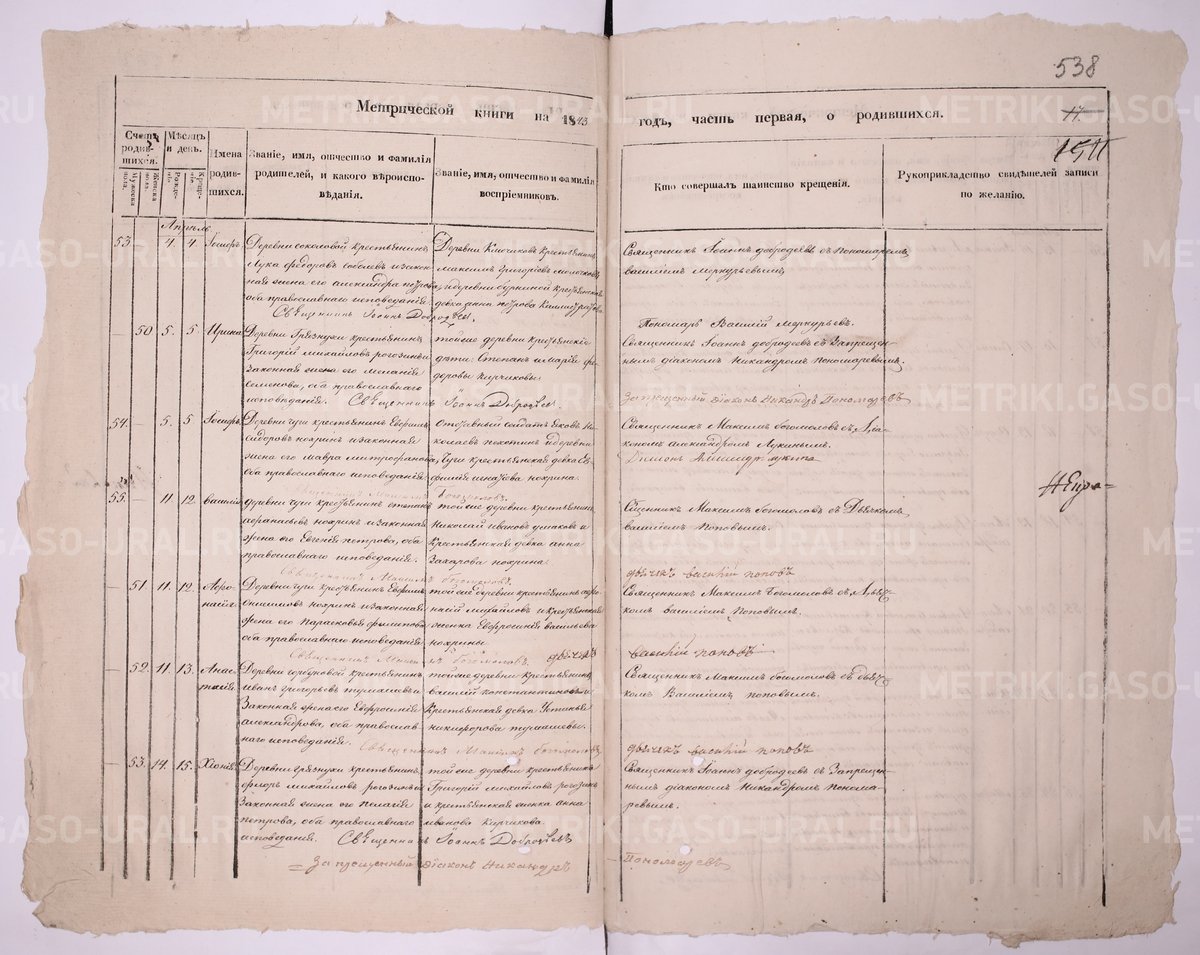 538
Метрической книги на 1843
годъ, часть первая, о родившихся.
17.
Счетъ родив-
шихся.
Мѣсяцъ
и день.
Мужеска
пола.
Женска
пола.
Рожде-
нія
Креще-
нія
Имена
родив-
шихся.
Званіе, имя, отчество и фамилія
родителей, и какого вѣроиспо-
вѣданія.
Званіе, имя, отчество и фамилія
воспріемниковъ.
Кто совершалъ таинство крещенія.
Рукоприкладство свидѣтелей записи
по желанію.
Апрѣль
53. — 4. 4. Іосифъ
Деревни соколовой крестьянинъ
Лука федоровъ соболевъ и закон-
ная жена его александра петрова,
оба православнаго исповеданія
Деревни Ключиковъ крестьянинъ
максимъ григорьевъ
девка анна петрова
Священникъ Іоаннъ Добродѣевъ.
Священникъ Іоаннъ добродеевъ съ пономаремъ
василіемъ меркурьевымъ
Пономарь Василій Меркурьевъ.
— 50 5. 5. Ирина
Деревни Грязнухи крестьянинъ
Григорій михайловъ рогозинъ и
Законная жена его меланія
семенова, оба православнаго
исповѣданія. Священникъ Іоаннъ Добродѣевъ.
тойже деревни крестьянскіе
дѣти: Степанъ и марія фе-
доровы Кирчиковы
Священникъ Іоаннъ добродеевъ съ Запрещен-
нымъ діакономъ Никандромъ пономаревымъ.
Запрещенный діаконъ Никандръ Пономаревъ
54. — 5. 5 Іосифъ
Деревни чуги крестьянинъ
сидоровъ нохринъ и законная
жена его мавра митрофанова,
оба православнаго исповѣданія
Отставный солдатъ яковъ ни-
колаевъ пехотинъ и деревни
Чуги крестьянская девка Ев-
фимія игнатова нохрина.
Священникъ Максимъ Богомоловъ.
Священникъ Максимъ богомоловъ съ діа-
кономъ александромъ Лукинымъ.
Діаконъ Александръ лукинъ
55. — 11. 12. василій
деревни чуги крестьянинъ
афанасьевъ нохринъ и законная
жена его Евгенія петрова, оба
православнаго исповеданія.
тойже деревни крестьянинъ
Николай ивановъ ушаковъ и
Крестьянская девка анна
Захарова нохрина.
Священникъ Максимъ богомоловъ.
Сщенникъ Максимъ богомоловъ съ Дьячкомъ
василіемъ Поповымъ.
дьячекъ василій поповъ
— 51. 11. 12. Афо-
насія.
Деревни чуги крестьянинъ Евфимъ
онисимовъ нохринъ и законная
жена его Парасковья филипова
оба православнаго исповѣданія
тойже деревни крестьянинъ афа-
насій михайловъ и крестьянская
жонка Евфросинія васильева
нохрины
Священникъ Максимъ богомоловъ. дьячекъ
Священникъ Максимъ Богомоловъ съ дьяч-
комъ василіемъ Поповымъ.
василій поповъ
— 52. 11. 13. Анас-
тасія.
Деревни горбуновой крестьянинъ
иванъ григорьевъ тумашевъ и
Законная жена его Евфросинія
александрова, оба православ-
наго исповеданія.
тойже деревни крестьянинъ
василій константиновъ и
Крестьянская девка Устинья
никифорова тумашевы.
Священникъ Максимъ богомоловъ
Священникъ Максимъ богомоловъ съ дьяч-
комъ Василіемъ поповымъ.
дьячекъ василій поповъ
— 53. 14. 15. Хіонія
Деревни грязнухи крестьянинъ
флоръ михайловъ рогозинъ и
Законная жена его пелагія
петрова, оба православнаго
исповеданія. Священникъ Іоаннъ Добродѣевъ
тойже деревни крестьянинъ
Григорій михайловъ рогозинъ
и крестьянская жонка анна
иванова Кирчикова
Священникъ Іоаннъ добродеевъ съ Запрещен-
нымъ діакономъ Никандромъ понома-
ревымъ.
Запрещенный діаконъ Никандръ
Пономаревъ
METRIKI.GASO-URAL.RU